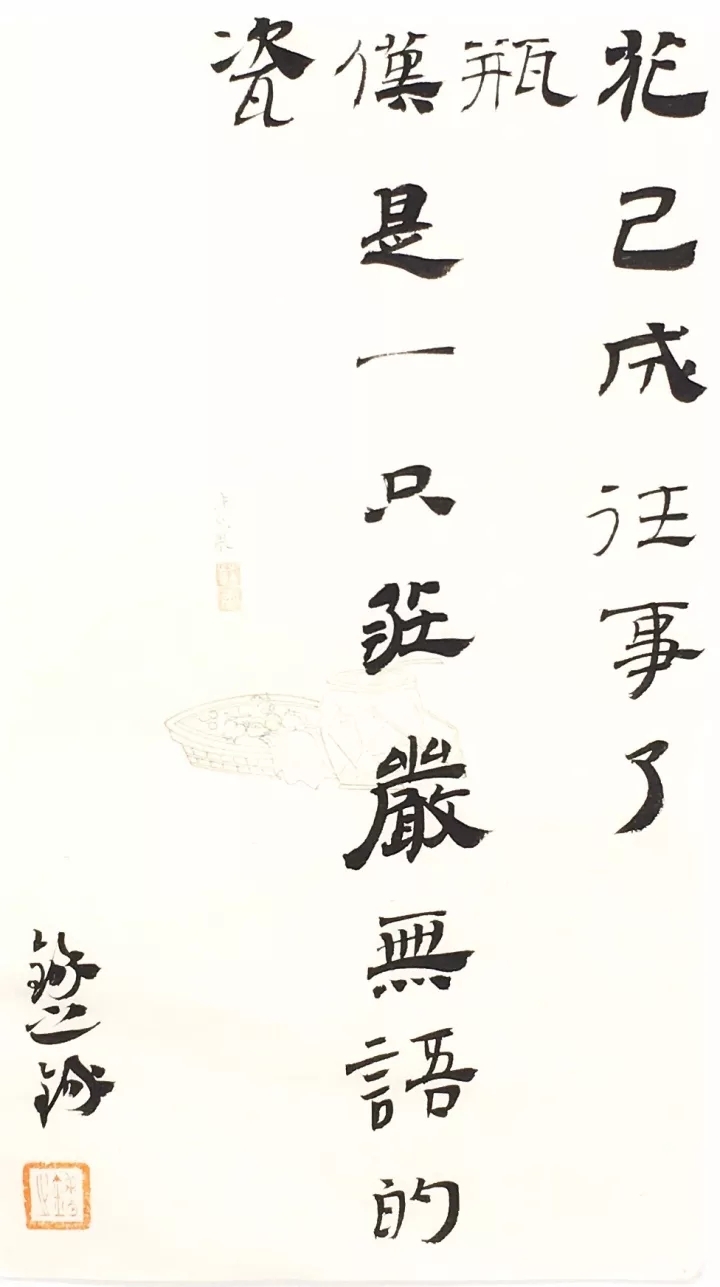 花已成往事了
瓶
僅是一只莊嚴無語的
瓷